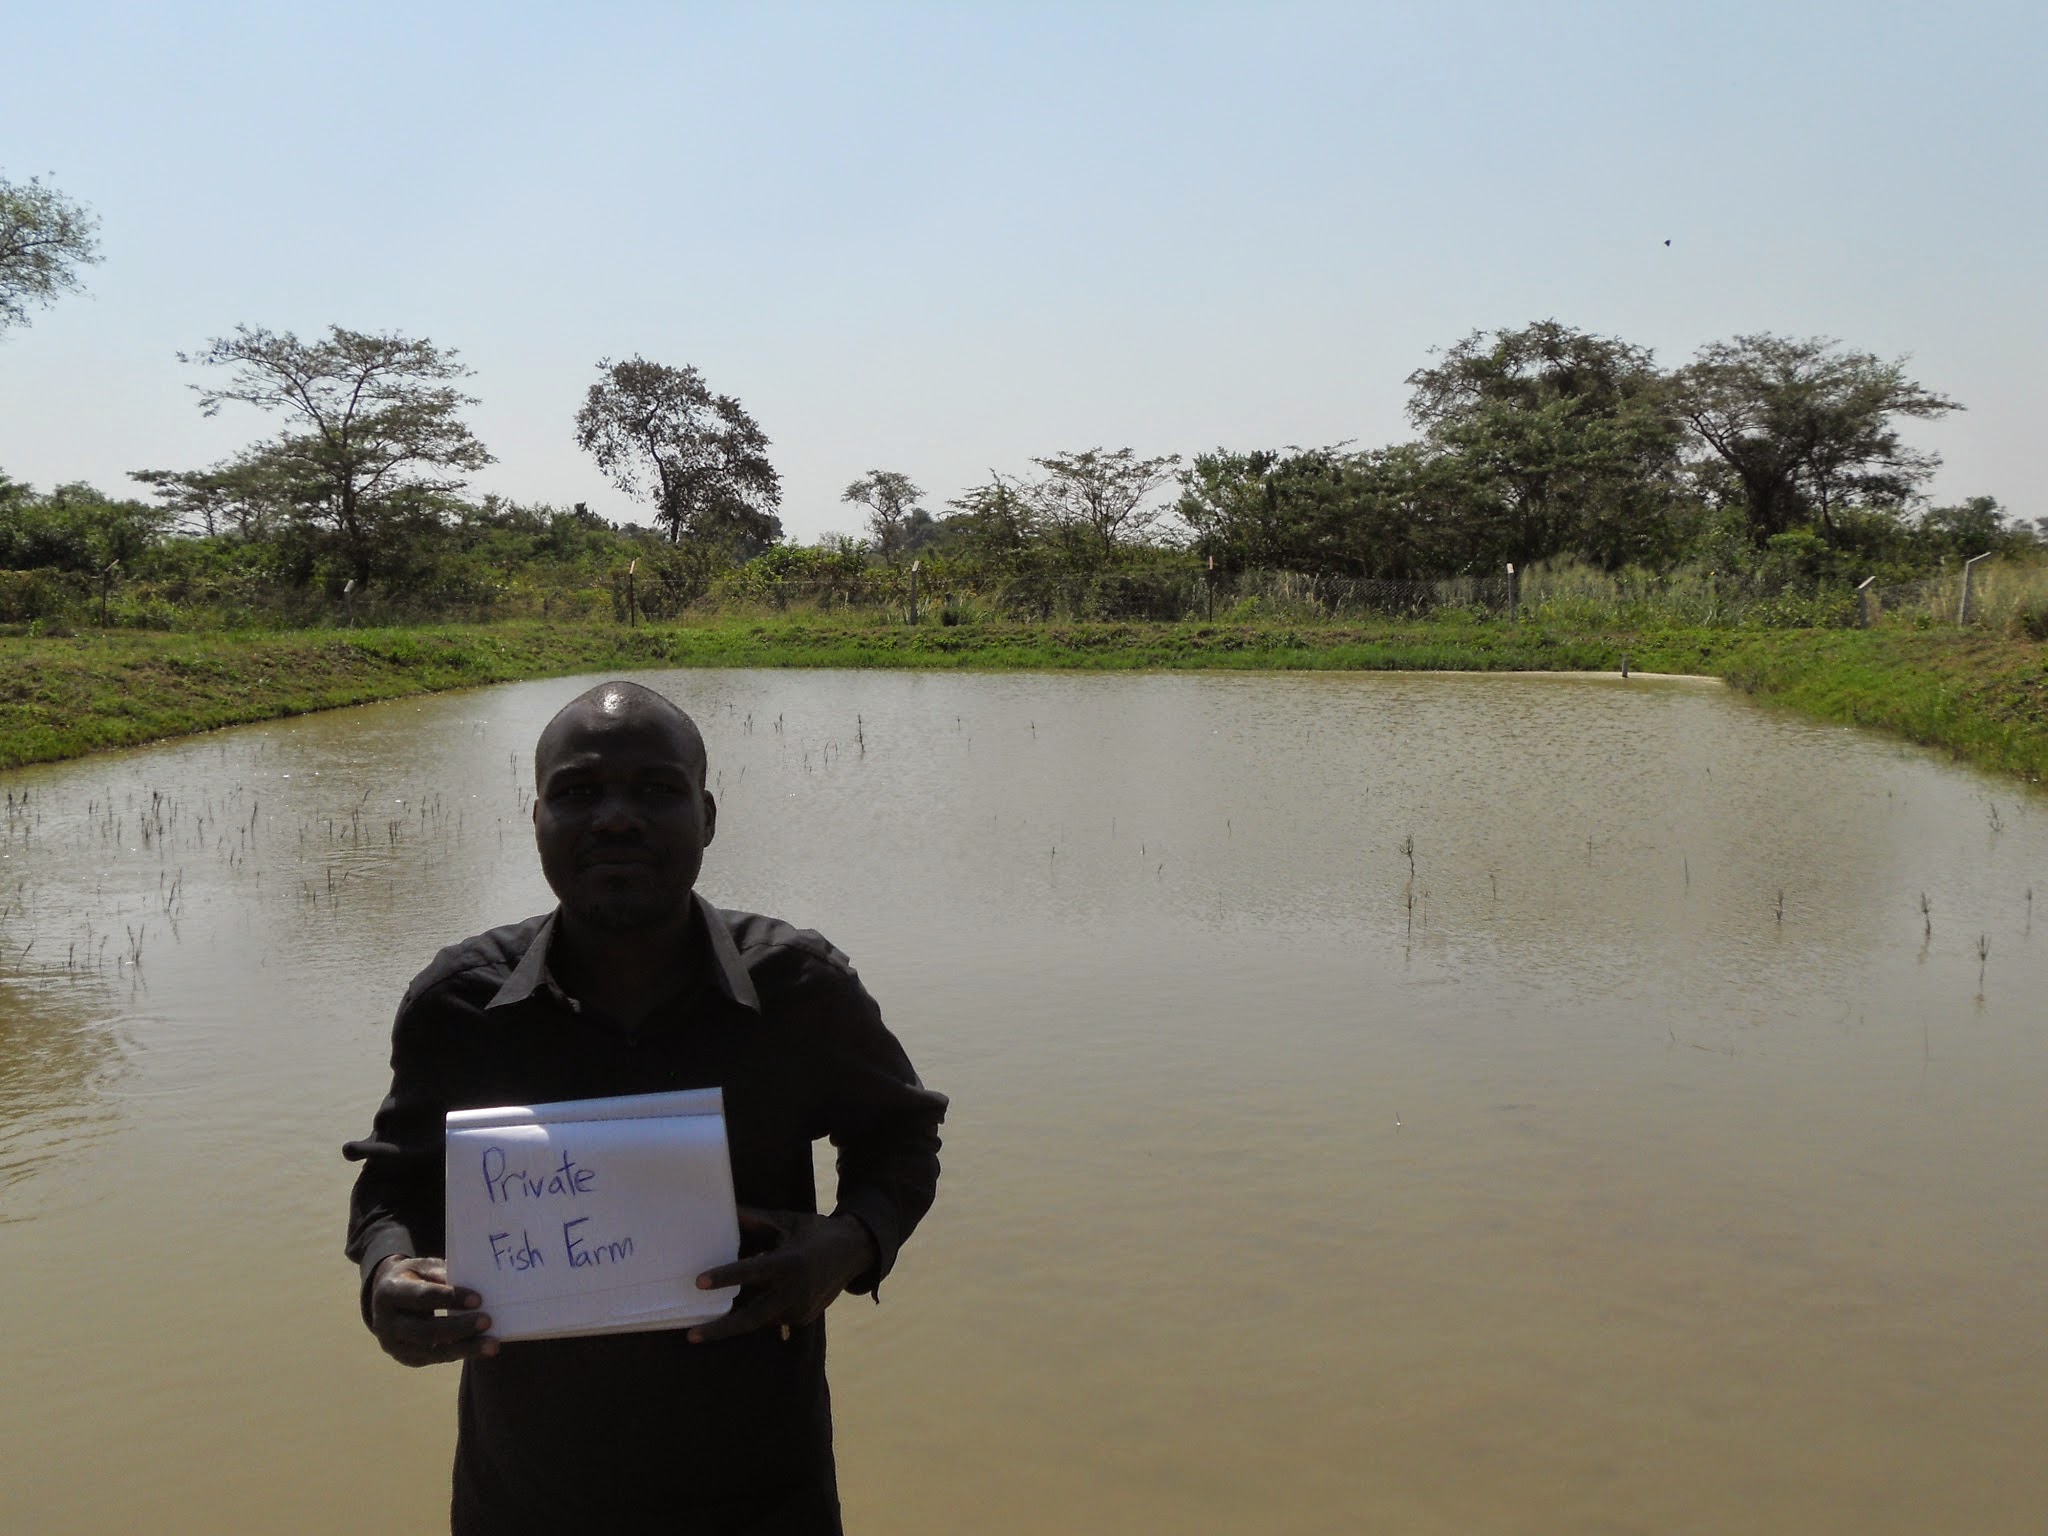 Private
Fish Farm